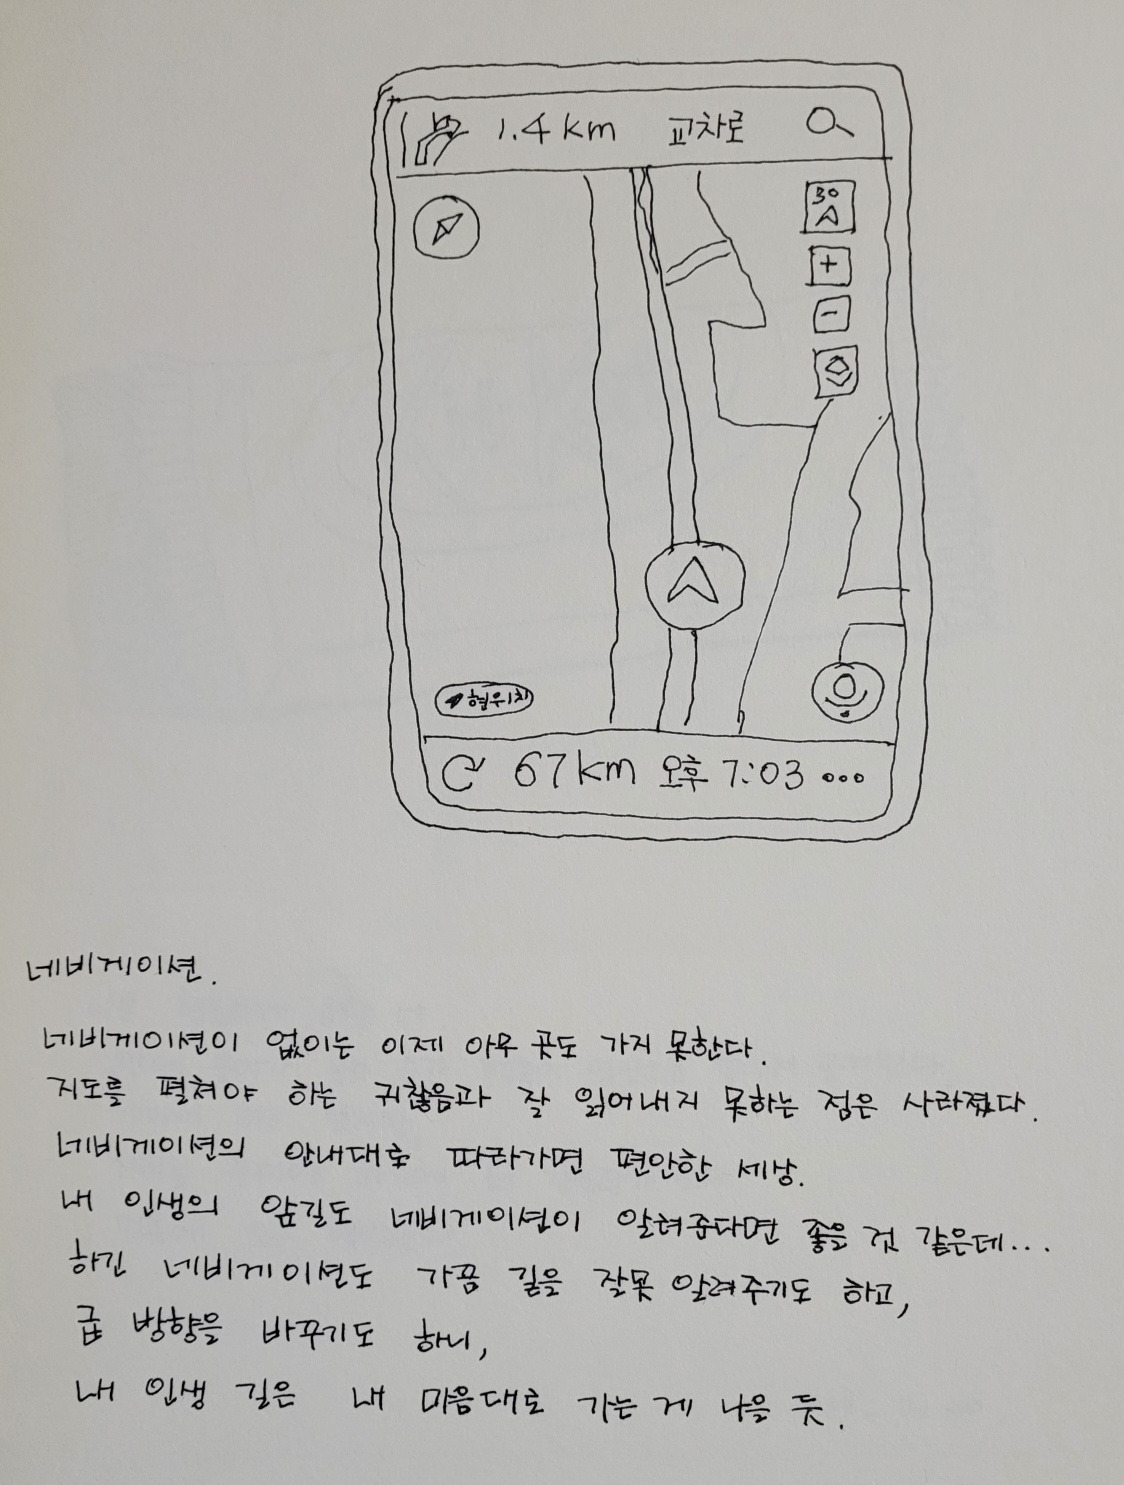 1.4 km 교차로
30
현위치
67 km 오후 7:03
네비게이션.
네비게이션이 없이는 이제 아무 곳도 가지 못한다.
지도를 펼쳐야 하는 귀찮음과 잘 읽어내지 못하는 점은 사라졌다.
네비게이션의 안내대로 따라가면 편안한 세상.
내 인생의 앞길도 네비게이션이 알려준다면 좋을 것 같은데...
하긴 네비게이션도 가끔 길을 잘못 알려주기도 하고,
급 방향을 바꾸기도 하니,
내 인생 길은 내 마음대로 가는 게 나을 듯.